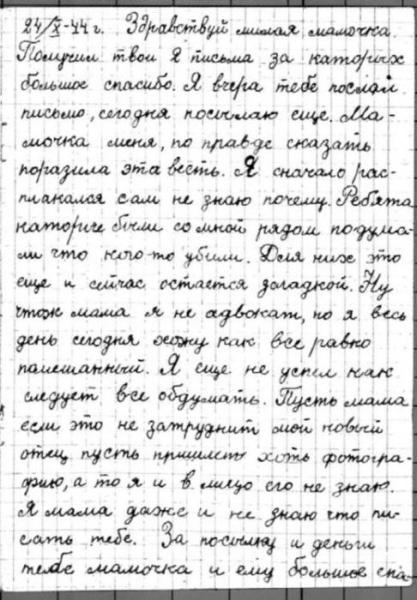 24/X-44 г. Здравствуй милая мамочка.
Получил твои 2 письма за каторых
большое спасибо. Я вчера тебе послал
письмо, сегодня посылаю еще. Ма-
мочка меня, по правде сказать
поразила эта весть. Я сначало рас-
плакался сам не знаю почему. Ребята
каторые были со мной рядом подума-
ли что кого-то убили. Для них это
еще и сейчас остается загадкой. Ну
чтож мама я не адвокат, но я весь
день сегодня хожу как все равно
помешанный. Я еще не успел как
следует все обдумать. Пусть мама
если это не затруднит мой новый
отец пусть пришлет хоть фотогра-
фию, а то я и в лицо его не знаю.
Я мама даже и не знаю что пи-
сать тебе. За посылку и деньги
тебе мамочка и ему большое спа-